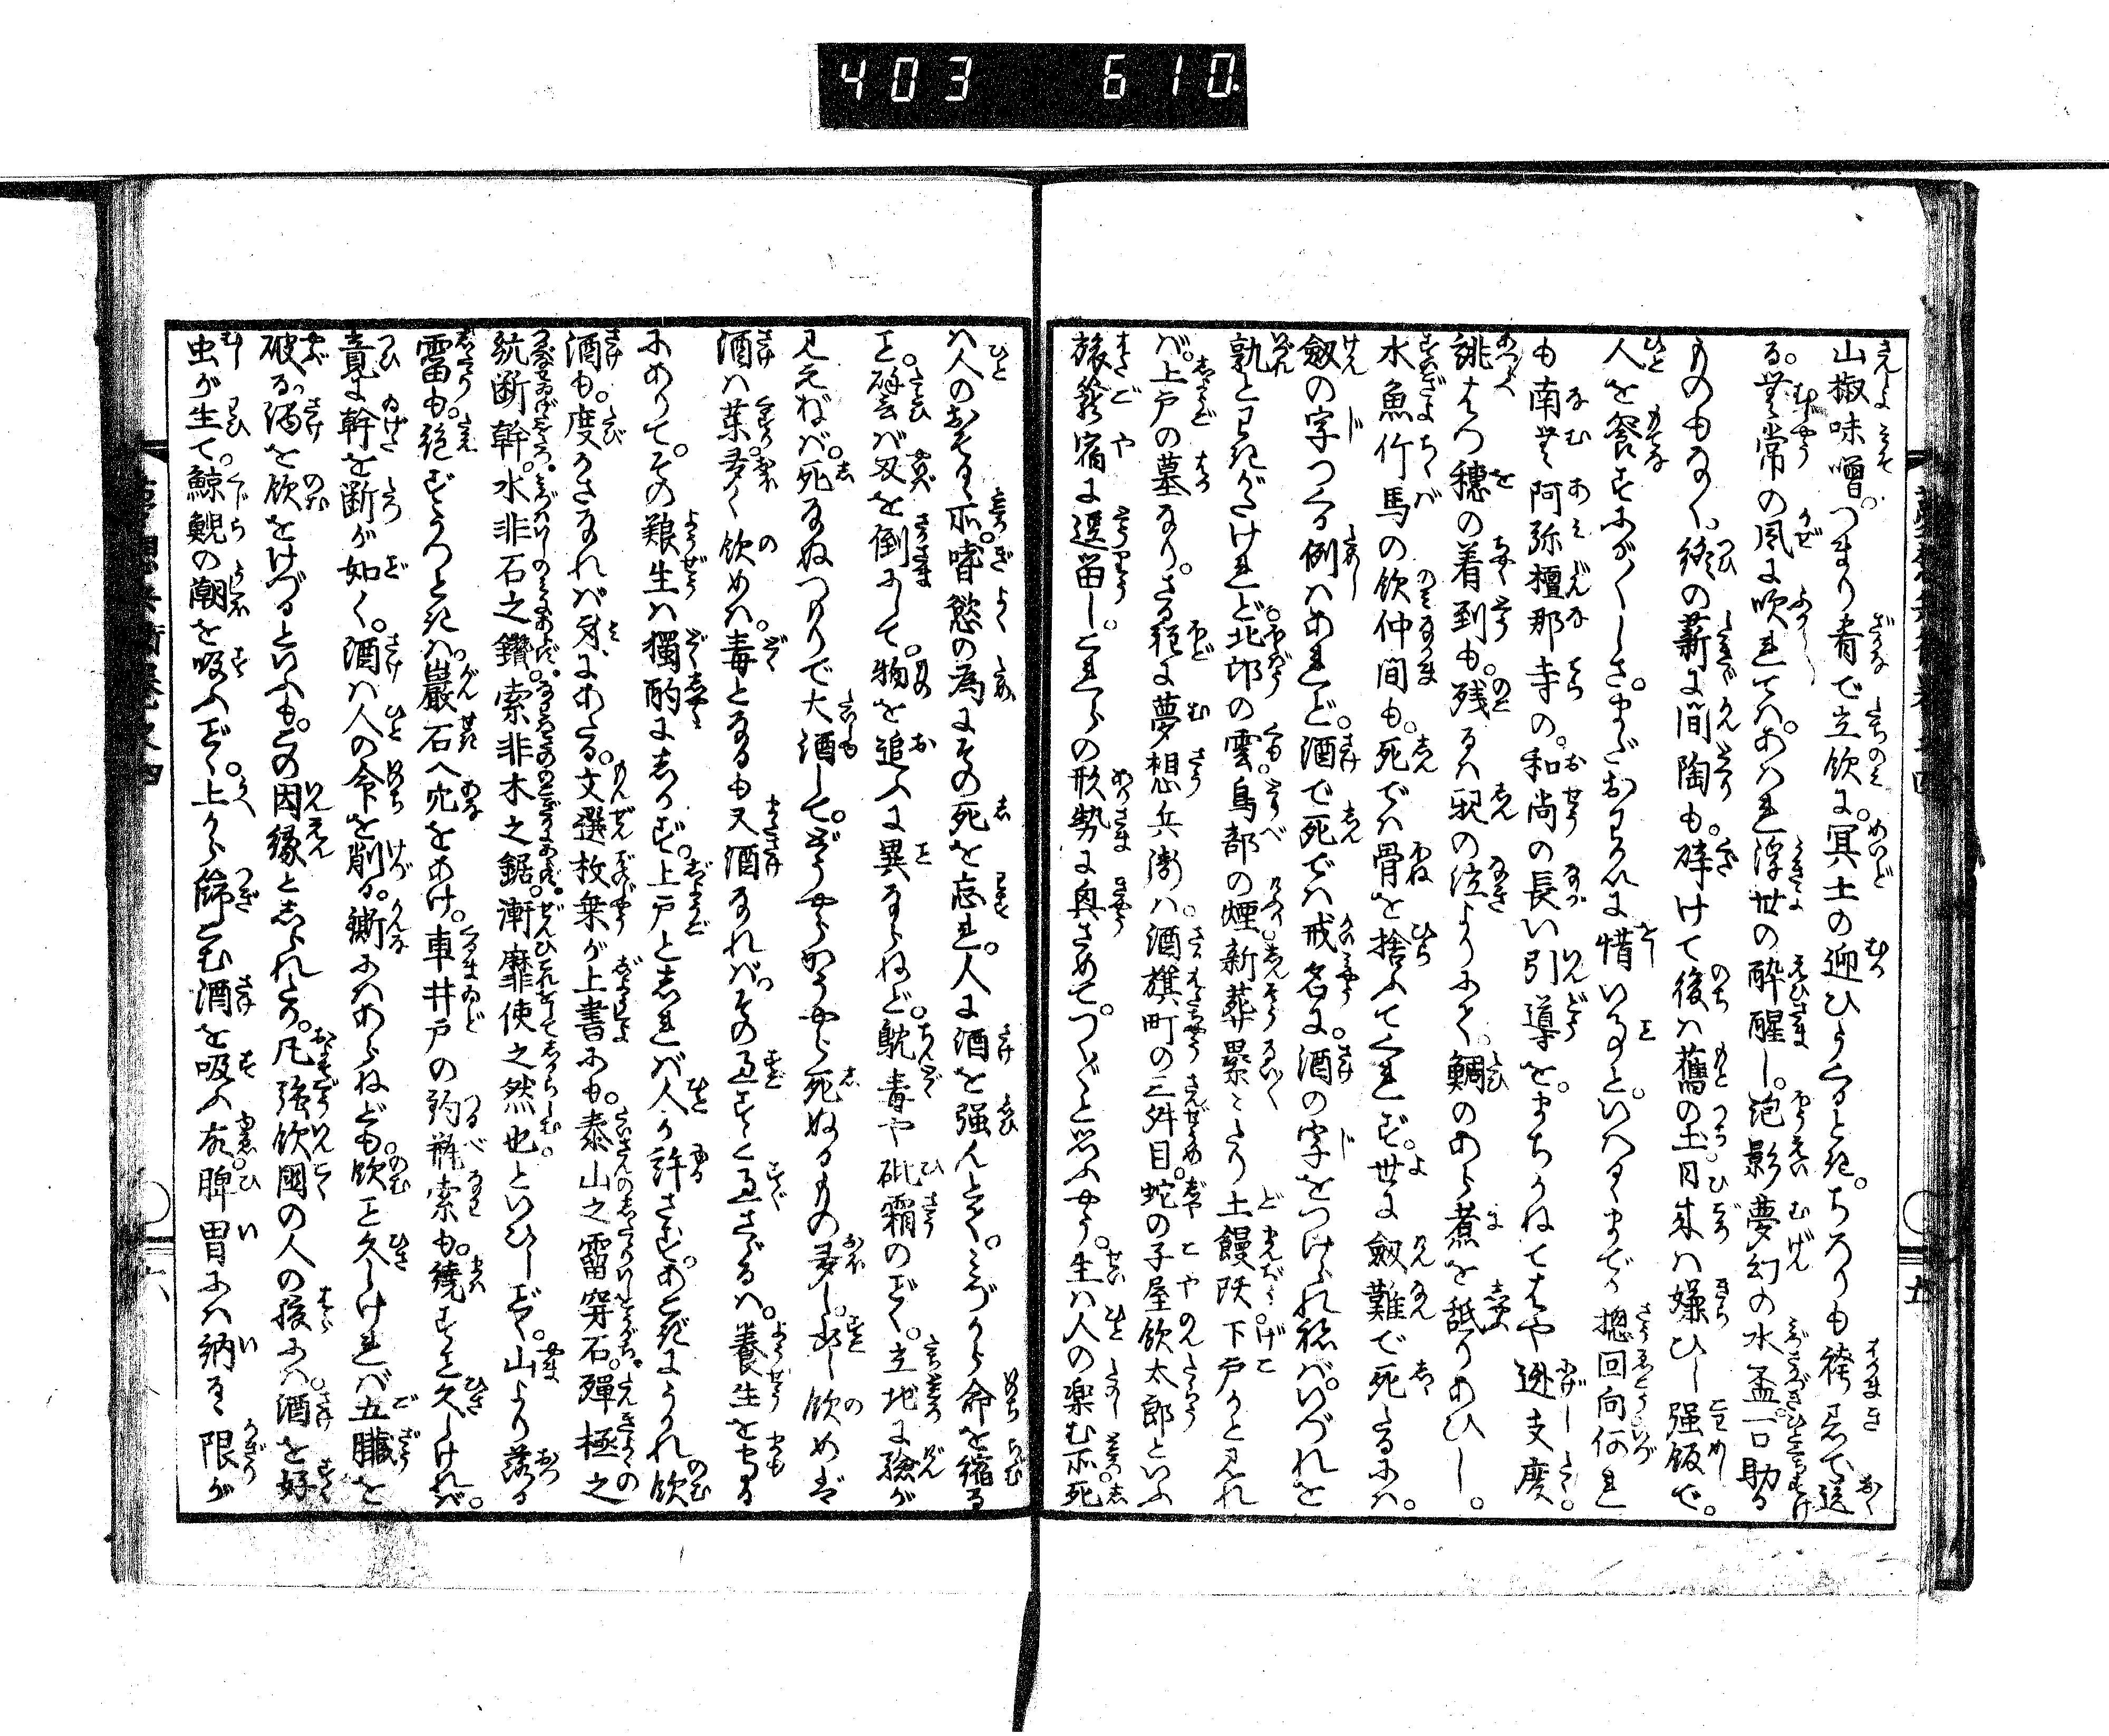 403 610
山椒味噌。つまり肴で立飲に。冥土の迎ひうくるとき。ちろりも袴着て送
る。無常の風に吹れてハ。あはれ浮世の酔醒し。泡影夢幻の水盃。一口助る
ものもなく。終の薪に間陶も。砕けて後ハ舊の土。日来ハ嫌ひし強飯で。
人を餐すおかしさ。まだおくらぬに惜い事と。いはるゝまでが揔回向。何れ
も南無阿弥檀那寺の。和尚の長い引導を。まちかねてはや迯支度。
誂はつ穂の着到も。残るハ親の泣よりにて。鯛のあら煮を舐りあひし。
水魚竹馬の飲仲間も。死では骨を捨ふてくれず。世に劔難で死たるにハ。
劔の字つくる例ハあれど。酒で死では戒名に。酒の字をつけられねば。いづれを
孰とわきがたけれど。北邙の雲鳥部の煙。新葬累〻たり土饅頭。下戸かと見れ
ば。上戸の墓なり。さる程に夢想兵衛ハ。酒旗町の三舛目。蛇の子屋飲太郎といふ
旅籠宿に逗留し。これらの形勢に興さめて。つく〲と思ふやう。生ハ人の楽む所。死
ハ人のおそるゝ所。嗜慾の為にその死を忘れ。人に酒を強んとて。みづから命を縮る
こと。譬ば刄を倒にして。物を追ふに異ならねど。鴆毒や砒霜のごとく。立地に験が
見えねば。死なぬつもりで大酒して。どうやらかうやら死ぬるもの多し。少し飲めば
酒ハ薬。多く飲めば。毒となるも又酒なれば。その過すと過さゞるハ。養生を守る
にありて。その難生ハ獨酌にしかず。上戸としれば人が許さず。あとさきにうかれ飲
酒も。度かさなれバ身にあたる。文選枚乗が上書にも。泰山之霤穿石。殫極之
統断幹。水非石之鑽。索非木之鋸。漸靡使之然也といひしごとく。山より落る
霤も。絶ずうつときハ。巌石へ穴をあけ。車井戸の釣瓶索も。繞ること久しければ。
竟に幹を断が如く。酒ハ人の命を削る。鐁にハあらねども。飲こと久しければ五臓を
破る。酒を飲をけづるといふも。この因縁としられたり。凡強飲國の人の腹にハ。酒を好
虫が生て。鯨鯢の潮を吸ふごとく。上から篩こむ酒を吸ふ故。脾胃にハ納る限が